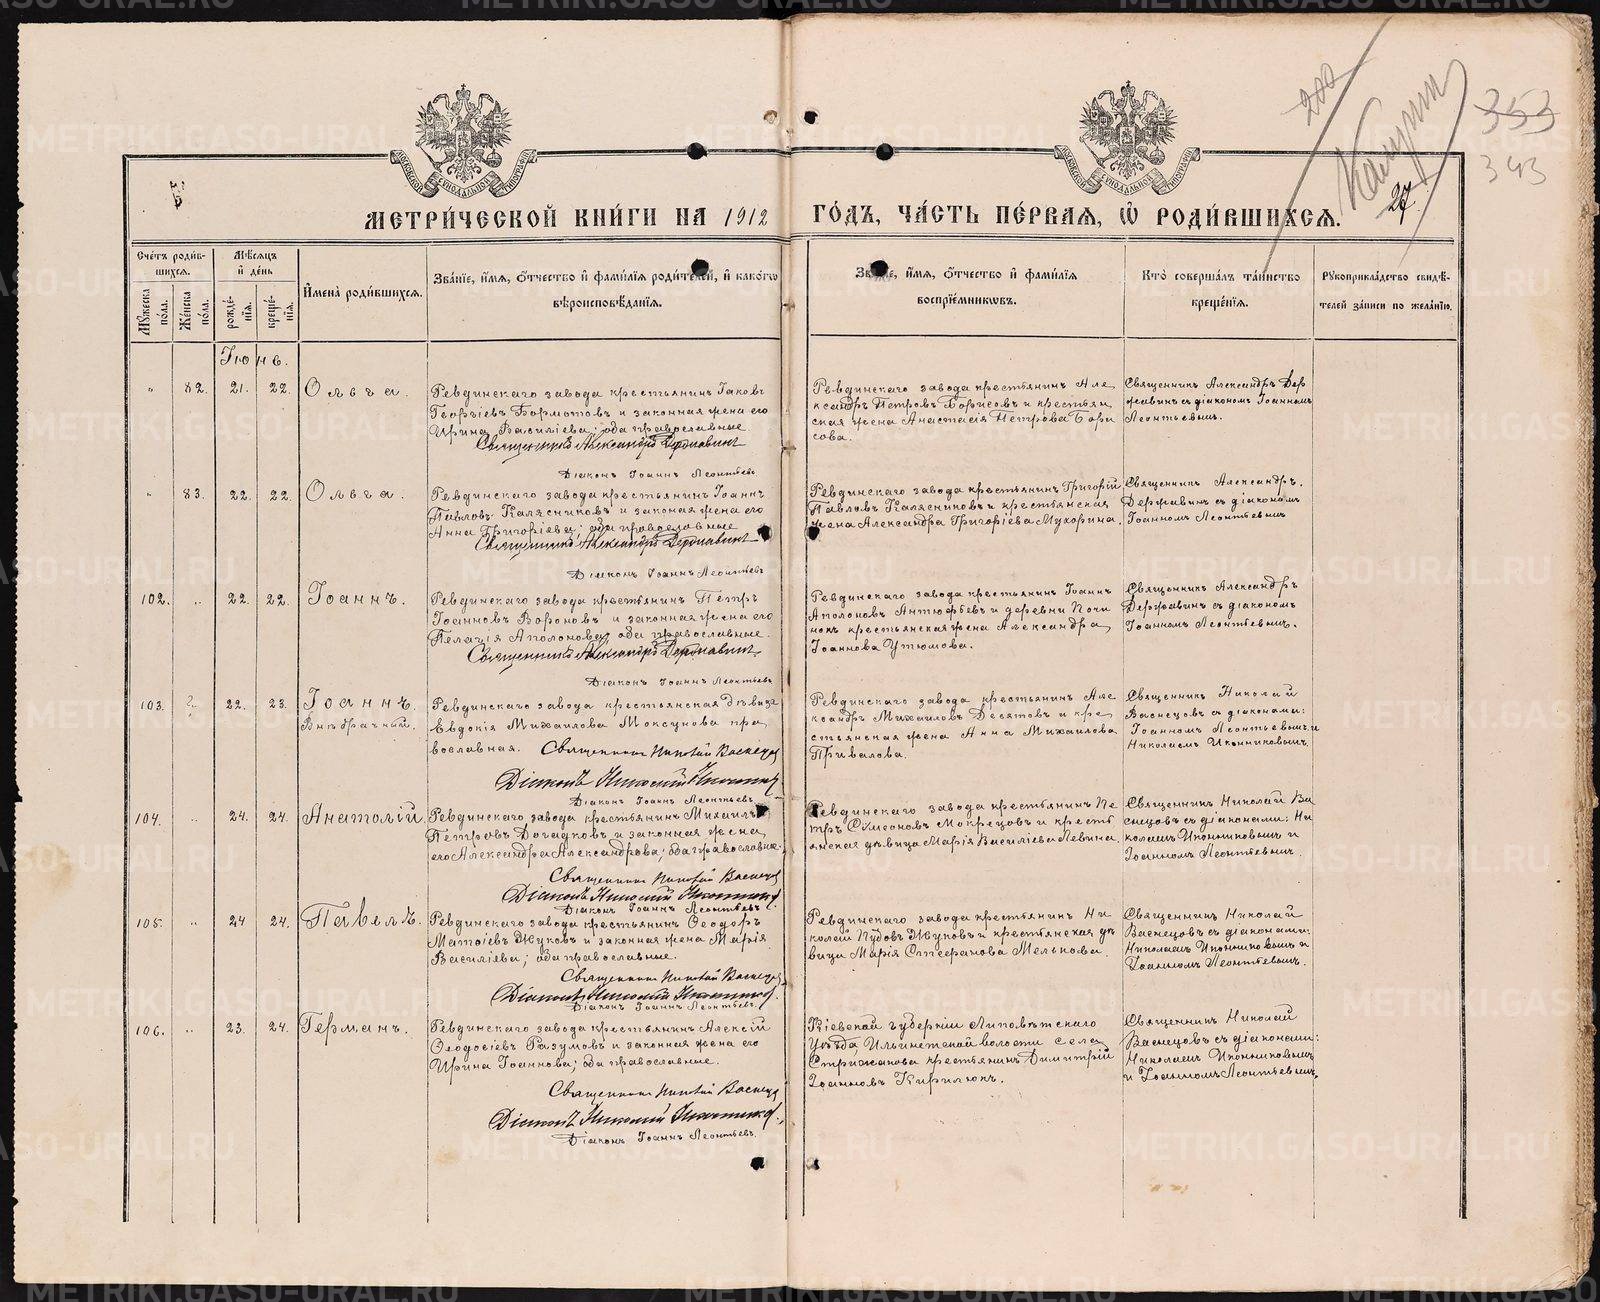 200
Калугин
353
343
27
МОСКОВСКОЙ СѴНОДАЛЬНОЙ ТИПОГРАФІИ
МОСКОВСКОЙ СѴНОДАЛЬНОЙ ТИПОГРАФІИ
МЕТРИ́ЧЕСКОЙ КНИ́ГИ НА 1912 ГО́ДЪ, ЧА́СТЬ ПЕ́РВАЯ, Ѽ РОДИ́ВШИХСЯ.
Сче́тъ роди́в-
шихся.
Мꙋ́жеска по́ла.
Же́нска по́ла.
Мѣ́сяцъ
и҆ де́нь
рожде́-
нїя.
креще́-
нїя.
И҆мена̀ роди́вшихся.
Зва́нїе, и҆́мя, ѻ҆́тчество и҆ фами́лїя роди́телей, и҆ како́гѡ
вѣроисповѣ́данїя.
Зва́нїе, и҆́мя, ѻ҆́тчество и҆ фами́лїя
воспрїе́мниковъ.
Кто̀ соверша́лъ та́инство
креще́нїя.
Рꙋкоприкла́дство свидѣ́-
телей за́писи по жела́нїю.
Іюнь.
" 82. 21. 22. Ольга.
Ревдинскаго завода крестьянинъ Іаковъ
Георгіевъ Бормотовъ и законная жена его
Ирина Васильева; оба православные
Священникъ Александръ Державинъ
Діаконъ Іоаннъ Леонтьевъ
Ревдинскаго завода крестьянинъ Але
ксандръ Петровъ Борисовъ и крестьян
ская жена Анастасія Петрова Бори
сова.
Священникъ Александръ Дер
жавинъ съ діакономъ Іоанномъ
Леонтьевымъ.
" 83. 22. 22. Ольга.
Ревдинскаго завода крестьянинъ Іоаннъ
Павловъ Калясниковъ и законная жена его
Анна Григоріева; оба православные
Священникъ Александръ Державинъ
Діаконъ Іоаннъ Леонтьевъ
Ревдинскаго завода крестьянинъ Григорій
Павловъ Калясниковъ и крестьянская
жена Александра Григоріева Мухорина.
Священникъ Александръ
Державинъ съ діакономъ
Іоанномъ Леонтьевымъ
102. " 22. 22. Іоаннъ.
Ревдинскаго завода крестьянинъ Петръ
Іоанновъ Вороновъ и законная жена его
Пелагія Аполонова; оба православные.
Священникъ Александръ Державинъ
Діаконъ Іоаннъ Леонтьевъ
Ревдинскаго завода крестьянинъ Іоаннъ
Аполоновъ Антюфьевъ и деревни Почи
нокъ крестьянская жена Александра
Іоаннова Утюмова.
Священникъ Александръ
Державинъ съ діакономъ
Іоанномъ Леонтьевымъ.
103. " 22. 23. Іоаннъ.
Внѣбрачный.
Ревдинскаго завода крестьянская дѣвица
Евдокія Михаилова Моксунова пра
вославная. Священникъ Николай Васнецовъ
Діаконъ Николай Иконниковъ
Діаконъ Іоаннъ Леонтьевъ.
Ревдинскаго завода крестьянинъ Але
ксандръ Михаиловъ Десятовъ и кре
стьянская жена Анна Михаилова
Привалова.
Священникъ Николай
Васнецовъ съ діаконами:
Іоанномъ Леонтьевымъ и
Николаемъ Иконниковымъ.
104. " 24. 24. Анатолій.
Ревдинскаго завода крестьянинъ Михаилъ
Петровъ Догадковъ и законная жена
его Александра Александрова; оба православные.
Священникъ Николай Васнецовъ
Діаконъ Николай Иконниковъ.
Діаконъ Іоаннъ Леонтьевъ.
Ревдинскаго завода крестьянинъ Пе
тръ Симеоновъ Мокрецовъ и кресть
янская дѣвица Марія Василіева Левина.
Священникъ Николай Ва
снецовъ съ діаконами: Ни
колаемъ Иконниковымъ и
Іоанномъ Леонтьевымъ.
105. " 24 24. Павелъ.
Ревдинскаго завода крестьянинъ Ѳеодоръ
Матѳіевъ Жуковъ и законная жена Марія
Василіева; оба православные.
Священникъ Николай Васнецовъ
Діаконъ Николай Иконниковъ.
Діаконъ Іоаннъ Леонтьевъ.
Ревдинскаго завода крестьянинъ Ни
колай Пудовъ Жуковъ и крестьянская дѣ
вица Марія Стефанова Мелькова.
Священникъ Николай
Васнецовъ съ діаконами:
Николаемъ Иконниковымъ и
Іоанномъ Леонтьевымъ.
106. " 23. 24. Германъ.
Ревдинскаго завода крестьянинъ Алексій
Ѳеодосіевъ Разумовъ и законная жена его
Ирина Іоаннова; оба православные.
Священникъ Николай Васнецовъ
Діаконъ Николай Иконниковъ.
Діаконъ Іоаннъ Леонтьевъ.
Кіевской губерніи Липовѣтскаго
уѣзда Ильинетской волости села
Стрижакова крестьянинъ Димитрій
Іоанновъ Кирилюкъ.
Священникъ Николай
Васнецовъ съ діаконами:
Николаемъ Иконниковымъ
и Іоанномъ Леонтьевымъ.
METRIKI.GASO-URAL.RU